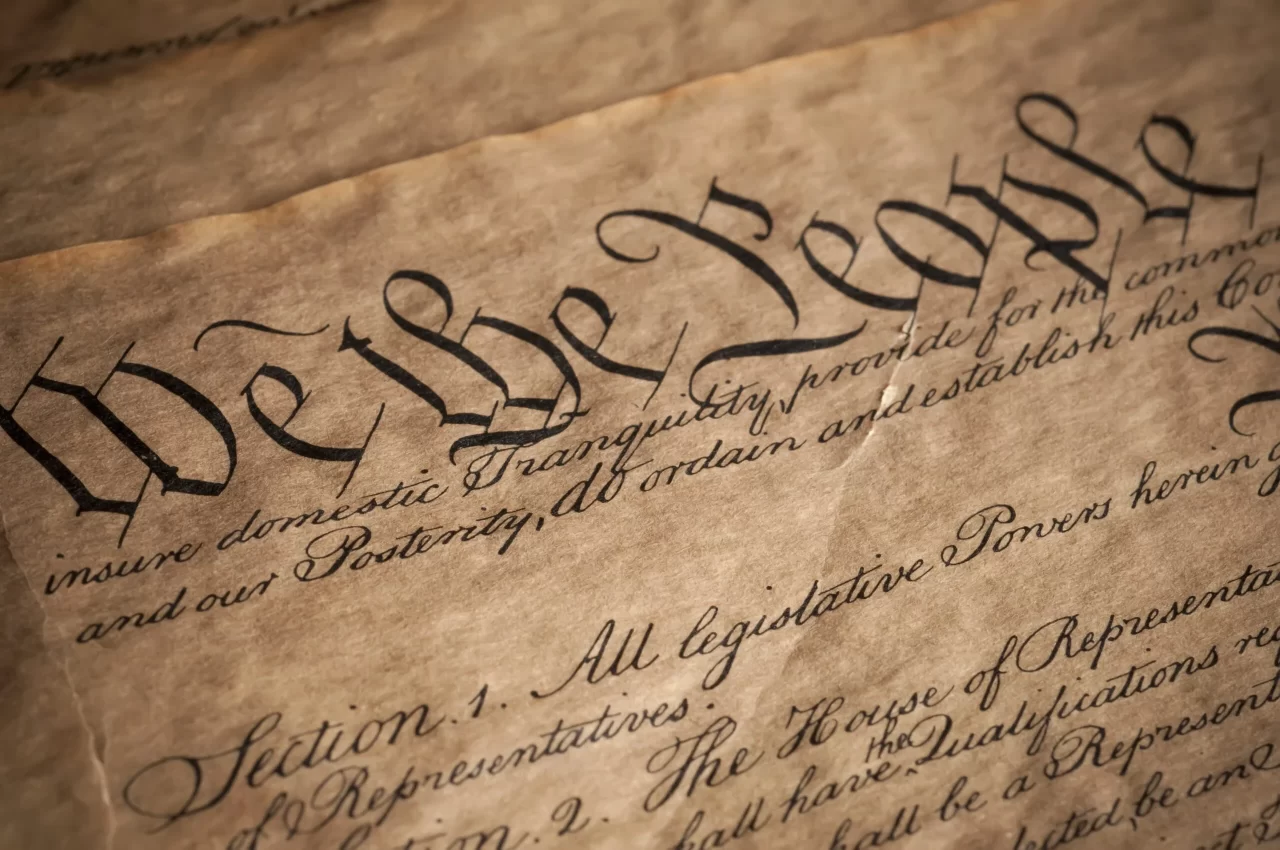 We the People
insure domestic Tranquility, provide for the common
and our Posterity, do ordain and establish this Co
Section. 1. All legislative Powers herein g
of Representatives.
ction. 2. The House of Representa
hall have the Qualifications req
hall be a Represent
lected, be an